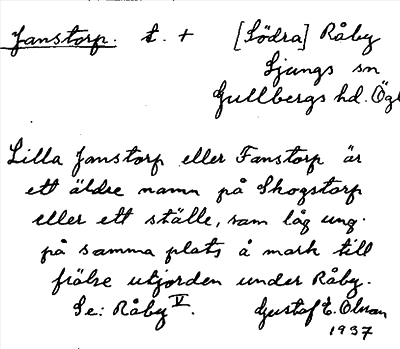 Janstorp. t. + [Södra] Råby
Ljungs sn
Gullbergs hd. Ögl
Lilla Janstorp eller Fanstorp är
ett äldre namn på Skogstorp
eller ett ställe, som låg ung.
på samma plats å mark till
frälse utjorden under Råby.
Se: Råby V. Gustaf E. Olson
1937